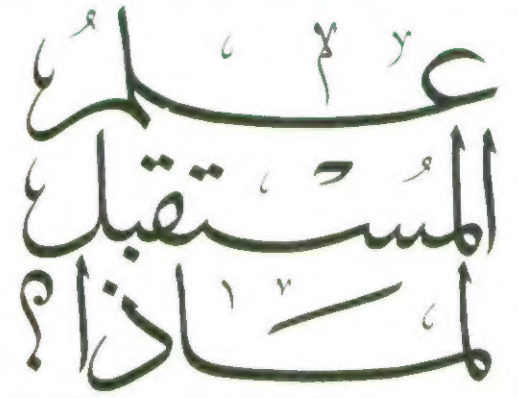 علم
المستقبل
لماذا؟